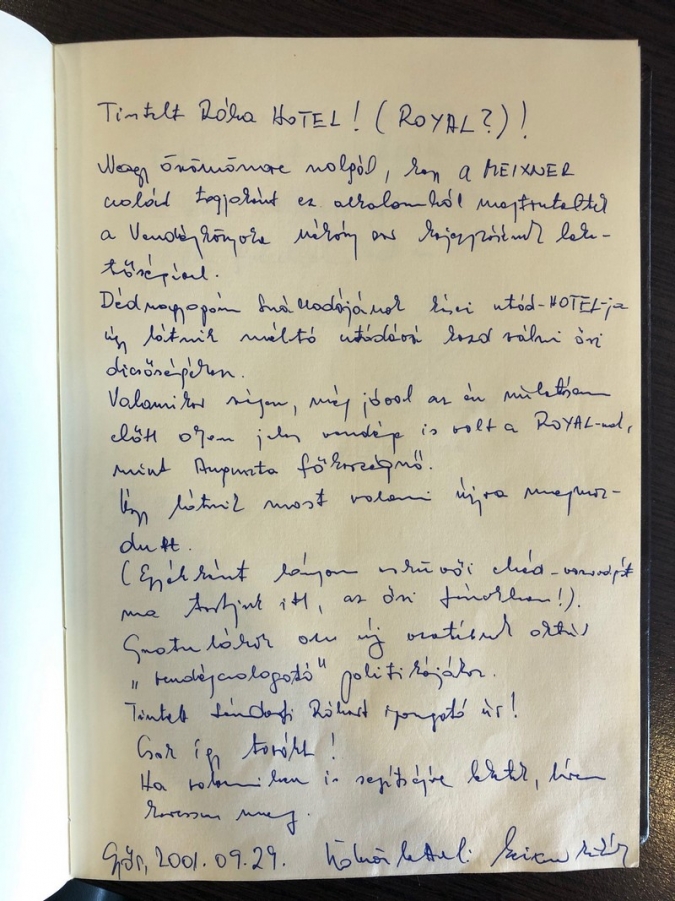 Tisztelt Rába HOTEL! (ROYAL?)!
Nagy örömömre szolgál, hogy a MEIXNER
család tagjaként ez alkalomból megtiszteltek
a Vendégkönyvbe néhány sor bejegyzésének lehe-
tőségével.
Dédnagyapám szállodájának kései utód-HOTEL-je
úgy látszik méltó utódává kezd válni ősi
dicsőségéhez.
Valamikor régen, még jóval az én születésem
előtt olyan jeles vendég is volt a ROYAL-nál,
mint Auguszta főhercegnő.
Úgy látszik most valami újra megmoz-
dult.
(Egyébként lányom esküvői ebéd-vacsoráját
ma tartjuk itt, az ősi fészekben!).
Gratulálok az új vezetésnek
"vendégcsalogató" politikájához.
Tisztelt Sándorfi Róbert igazgató úr!
Csak így tovább!
Ha valamiben is segítségére lehetek, kérem
keressen meg.
Győr, 2001. 09. 29. Üdvözlettel: Meixner